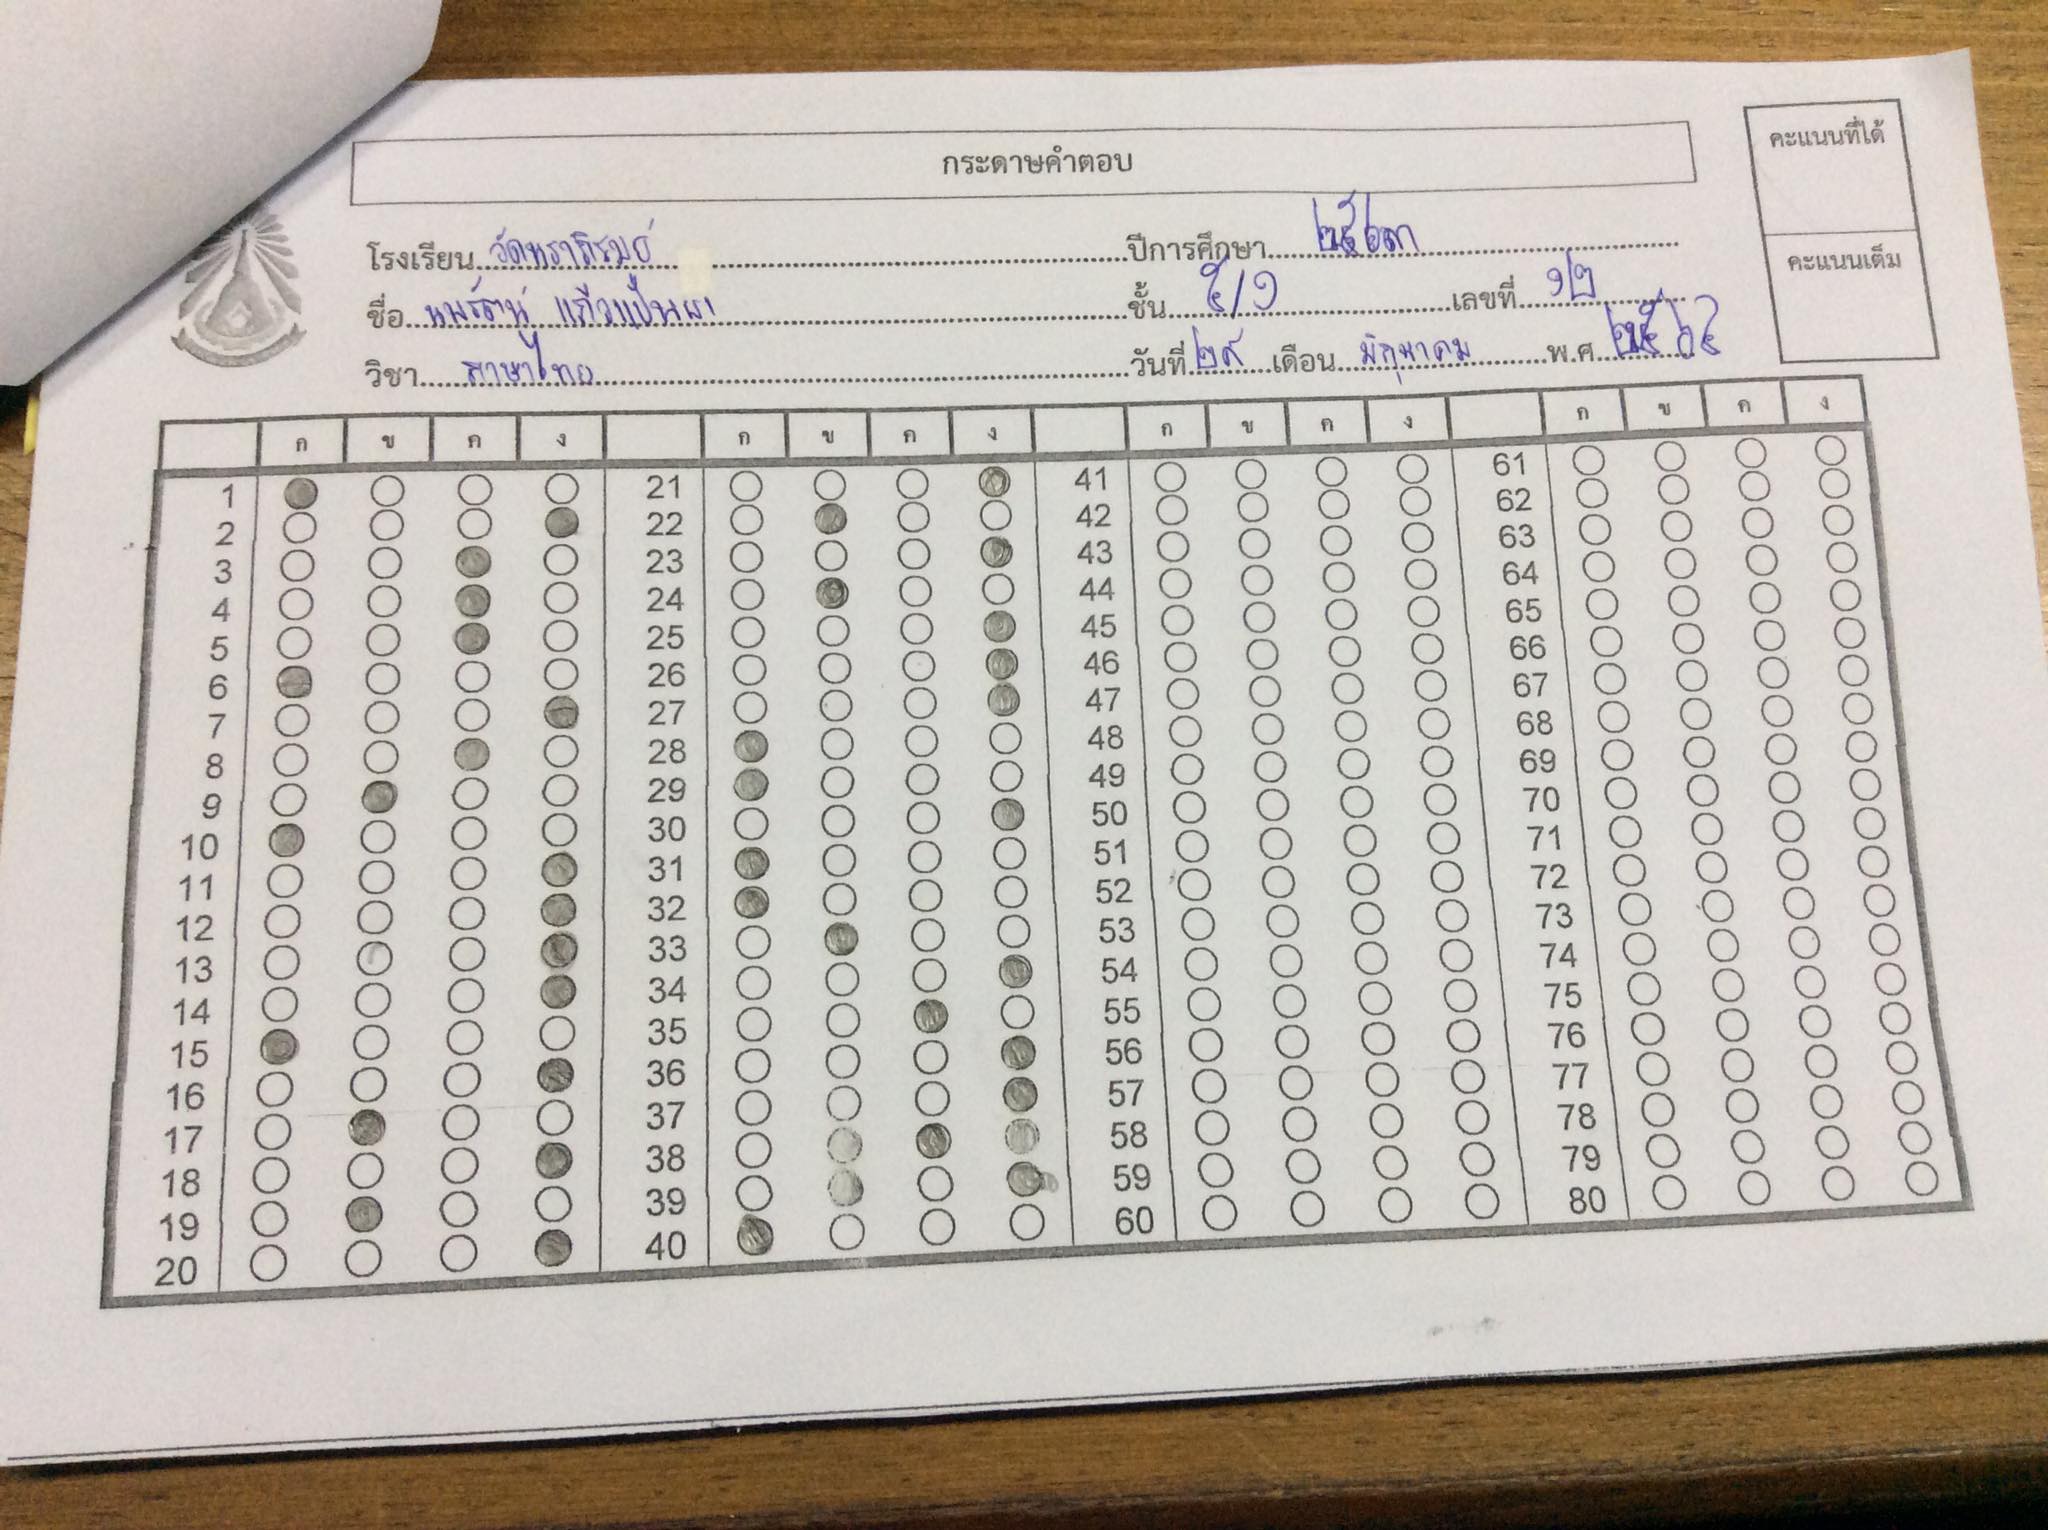 กระดาษคำตอบ
คะแนนที่ได้
คะแนนเต็ม
โรงเรียน วัดทราภิรมย์ ปีการศึกษา ๒๕๖๓
ชื่อ ชั้น ๕/๑ เลขที่ ๑๒
วิชา ภาษาไทย วันที่ ๒๙ เดือน มิถุนาคม พ.ศ ๒๕๖๔
ก ข ค ง ก ข ค ง ก ข ค ง ก ข ค ง
1 21 41 61
2 22 42 62
3 23 43 63
4 24 44 64
5 25 45 65
6 26 46 66
7 27 47 67
8 28 48 68
9 29 49 69
10 30 50 70
11 31 51 71
12 32 52 72
13 33 53 73
14 34 54 74
15 35 55 75
16 36 56 76
17 37 57 77
18 38 58 78
19 39 59 79
20 40 60 80